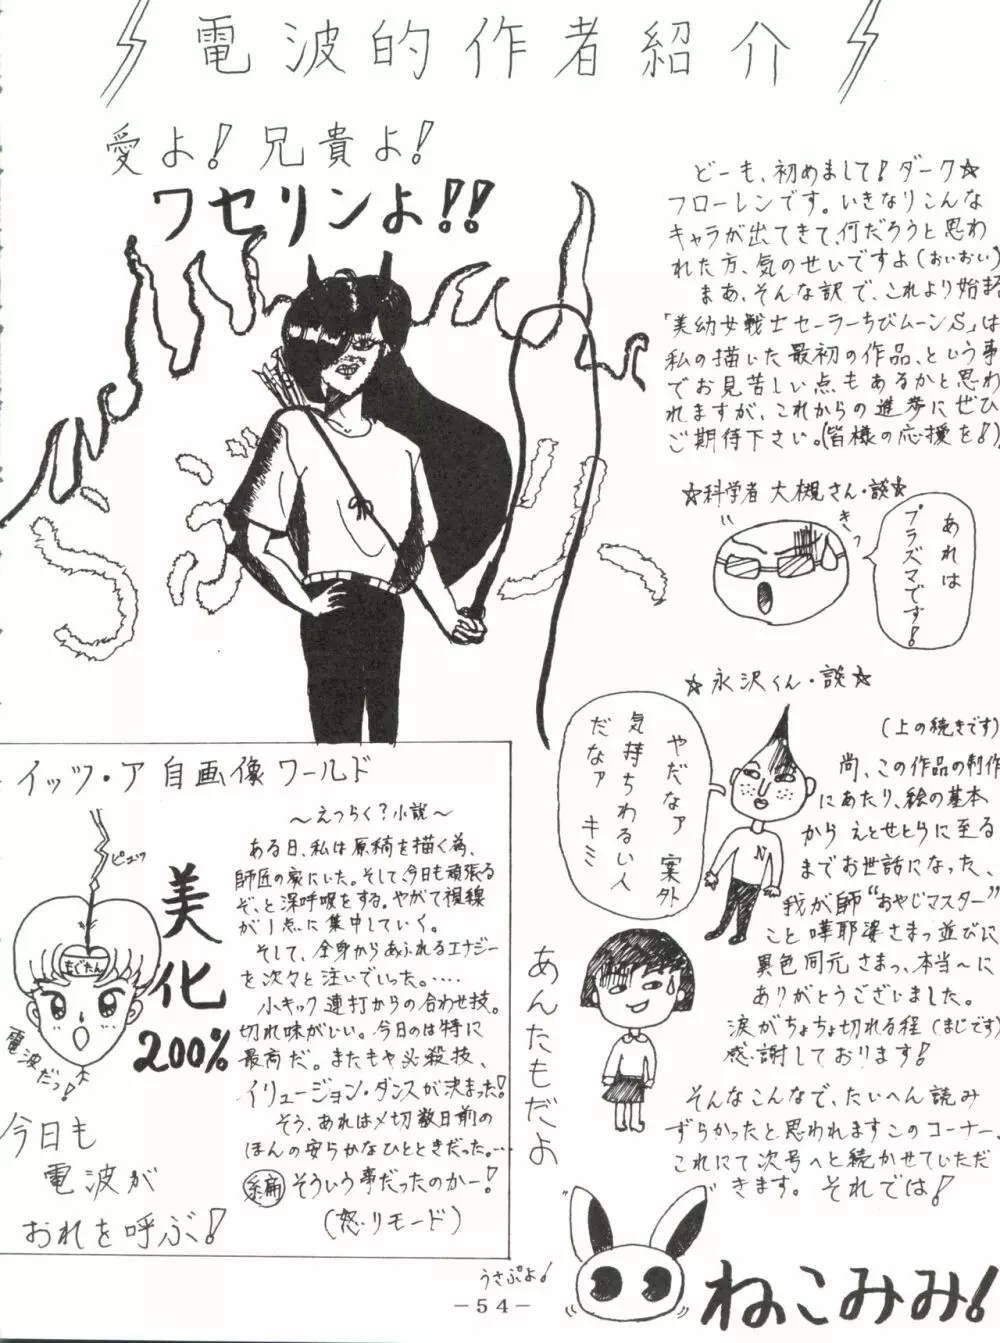 電波的作者紹介
愛よ!兄貴よ!
ワセリンよ!!
どーも、初めまして!ダーク☆
フローレンです。いきなりこんな
キャラが出てきて、何だろうと思わ
れた方、気のせいですよ(おいおい)
まあ、そんな訳で、これより始まる
「美幼女戦士セーラーちびムーンS」は
私の描いた最初の作品、という事
でお見苦しい点もあるかと思わ
れますが、これからの進歩にぜひ
ご期待下さい。(皆様の応援を!)
☆科学者 大槻さん・談☆
きっ
あれは
プラズマです!
☆永沢くん・談☆
やだなァ 案外
気持ちわるい人
だなァ キミ
N
あんたもだよ
(上の続きです)
尚、この作品の制作
にあたり、絵の基本
から えとせとらに至る
までお世話になった、
我が師“おやじマスター”
こと 嘩耶婆さまっ並びに
異色同元さまっ、本当〜に
ありがとうございました。
涙がちょちょ切れる程(まじです)
感謝しております!
そんなこんなで、たいへん読み
ずらかったと思われますこのコーナー、
これにて次号へと続かせていただ
きます。それでは!
イッツ・ア 自画像ワールド
ピュッ
美化
200%
電波だっ!
今日も
電波が
おれを呼ぶ!
〜えっらく?小説〜
ある日、私は原稿を描く為、
師匠の家にいた。そして、今日も頑張る
ぞ、と深呼吸をする。やがて視線
が1点に集中していく。
そして、全身からあふれるエナジー
を次々と注いでいった。……
小キック連打からの合わせ技。
切れ味がいい。今日のは特に
最高だ。またもや必殺技、
イリュージョン・ダンスが決まった!
そう、あれは〆切数日前の
ほんの安らかなひとときだった。…
編 そういう事だったのかー!
(怒・リモード)
うさぷよ!
ねこみみ!
-54-